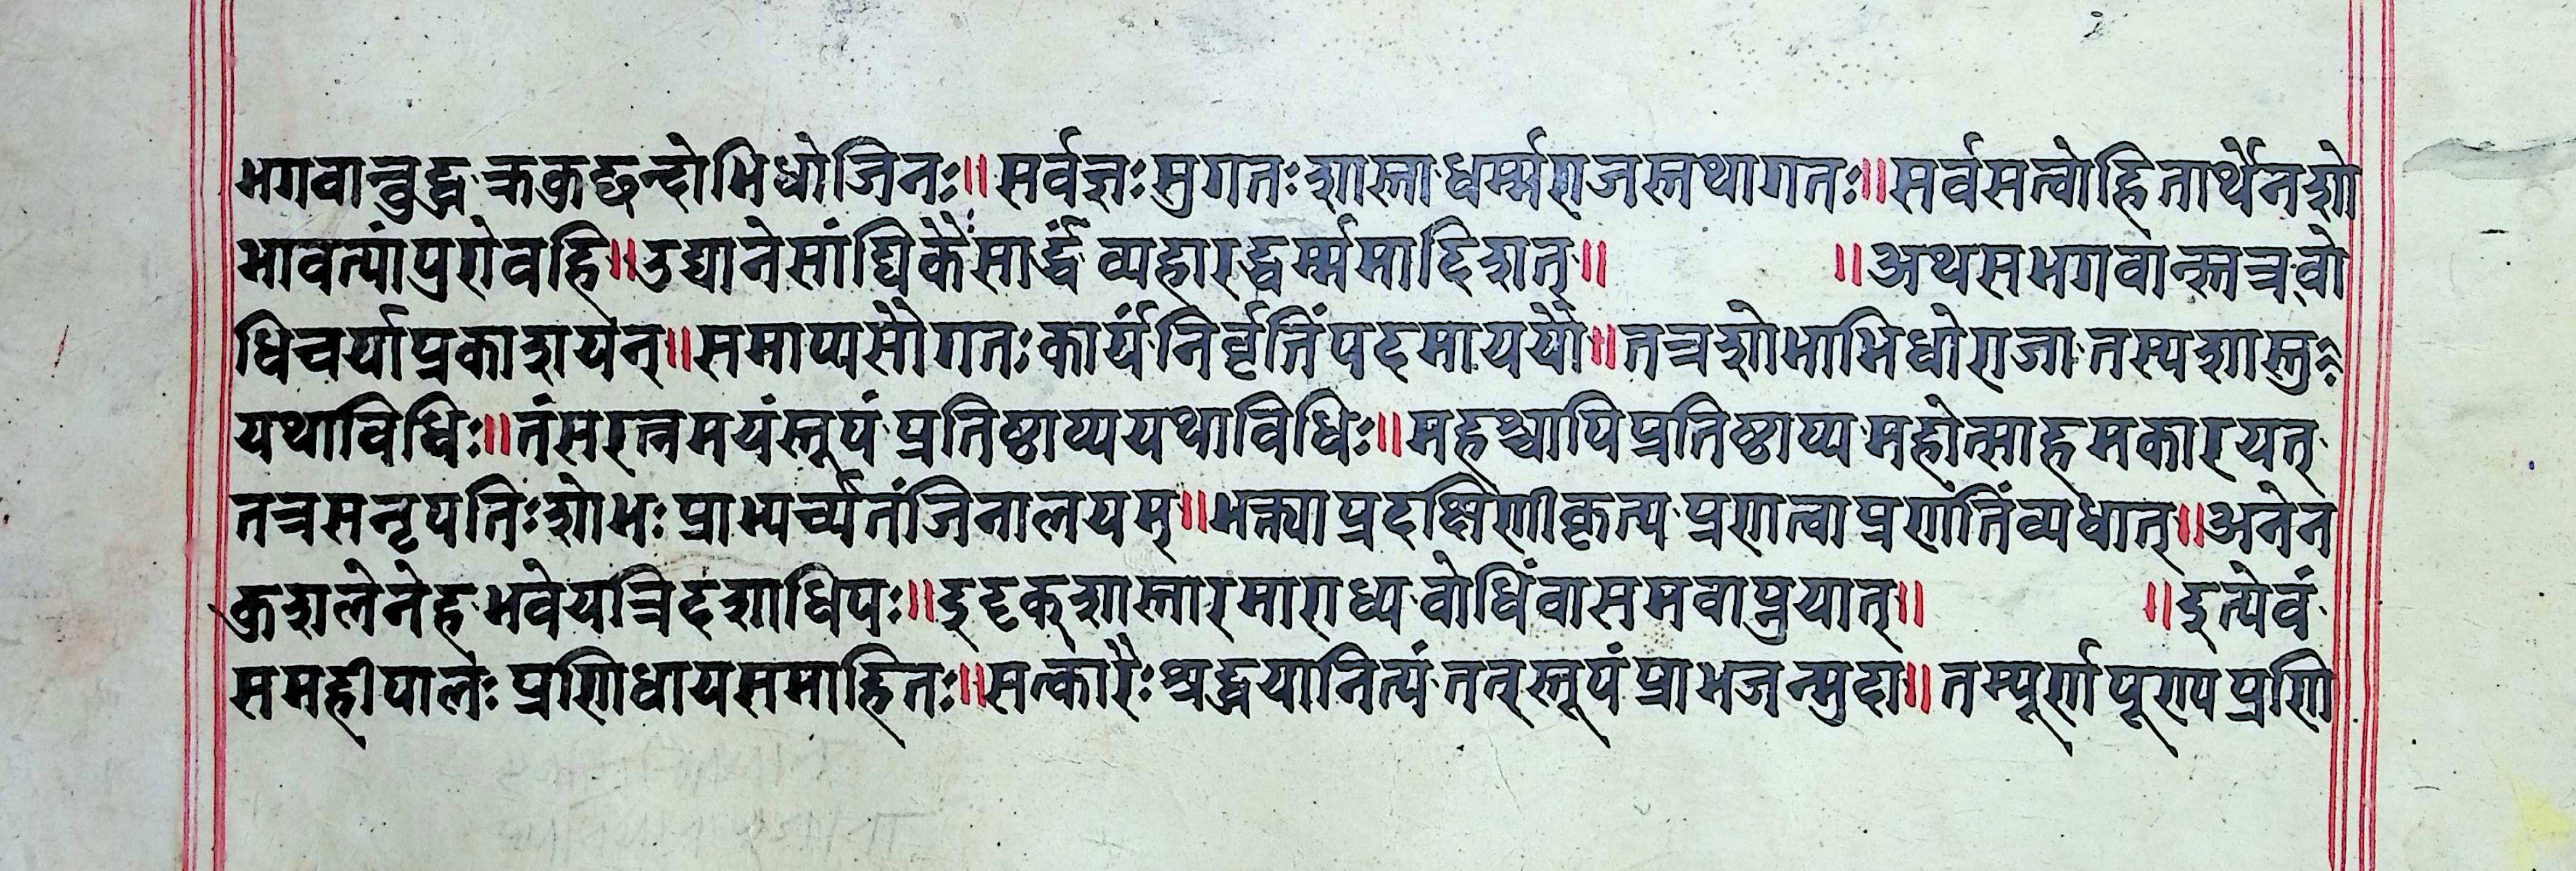 भगवान्बुद्ध क्रकुच्छन्दोभिधोजिनः॥सर्वज्ञःसुगतःशास्ताधर्म्मराजस्तथागतः॥सर्वसत्वोहितार्थेनशो
भावत्यांपुरोवहि॥उद्यानेसांघिकैःसार्द्धं व्यहारद्धर्म्ममादिशत्॥ ॥अथसभगवान्स्तत्रवो
धिचर्याप्रकाशयन्॥समाप्यसौगतःकार्यंनिर्वृतिंपदमाययौ॥तत्रशोभाभिधोराजा तस्यशास्तुः
यथाविधिः॥तंसरत्नमयंस्तूपं प्रतिष्ठाप्ययथाविधिः॥महश्चापिप्रतिष्ठाप्य महोत्साहमकारयत्
तत्रसनृपतिःशोभः प्राभ्यर्च्यतंजिनालयम्॥भक्त्याप्रदक्षिणीकृत्य प्रणत्वाप्रणतिंव्यधात्॥अनेन
कुशलेनेह भवेयत्रिदशाधिपः॥इदृक्शास्तारमाराध्य वोधिंवासमवाप्नुयात्॥ ॥इत्येवं
समहीपालः प्रणिधायसमाहितः॥सत्कारैःश्रद्धयानित्यं तत्स्तूपं प्राभजन्मुदा॥तम्पूर्णपूण्यप्रणि